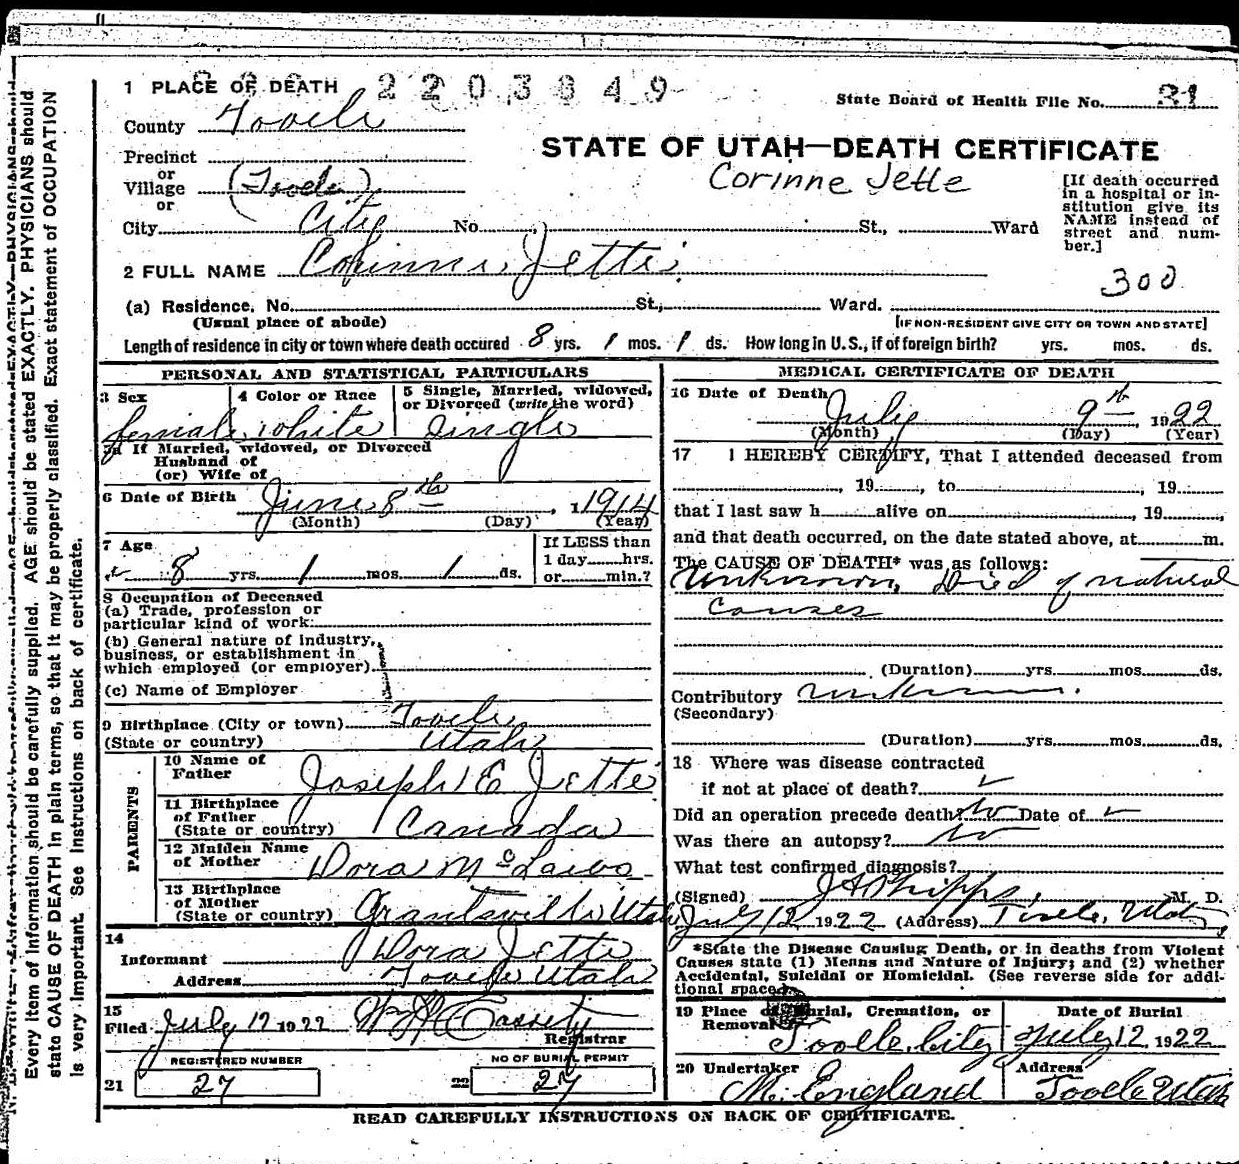 1 PLACE OF DEATH 2203849
State Board of Health File No. 31
County Tooele
STATE OF UTAH—DEATH CERTIFICATE
Corinne Jette
Precinct
or
Village (Tooele)
or
City City No. St., Ward
[If death occurred
in a hospital or in-
stitution give its
NAME instead of
street and num-
ber.]
2 FULL NAME Corinne Jette
300
(a) Residence, No. St., Ward.
(Usual place of abode) [IF NON-RESIDENT GIVE CITY OR TOWN AND STATE]
Length of residence in city or town where death occured 8 yrs. 1 mos. 1 ds. How long in U.S., if of foreign birth? yrs. mos. ds.
PERSONAL AND STATISTICAL PARTICULARS
3 Sex 4 Color or Race 5 Single, Married, widowed,
or Divorced (write the word)
female white single
5a If Married, widowed, or Divorced
Husband of
(or) Wife of
6 Date of Birth June 8th, 1914
(Month) (Day) (Year)
7 Age If LESS than
1 day hrs.
8 yrs. 1 mos. 1 ds. or min.?
8 Occupation of Deceased
(a) Trade, profession or
particular kind of work:
(b) General nature of industry,
business, or establishment in
which employed (or employer)
(c) Name of Employer
9 Birthplace (City or town) Tooele,
(State or country) Utah
PARENTS
10 Name of
Father Joseph E Jette
11 Birthplace
of Father
(State or country) Canada
12 Maiden Name
of Mother Dora McLaws
13 Birthplace
of Mother
(State or country) Grantsville Utah
14
Informant Dora Jette
Address Tooele Utah
15
Filed July 12 1922
Registrar
REGISTERED NUMBER NO OF BURIAL PERMIT
21 27 22 27
MEDICAL CERTIFICATE OF DEATH
16 Date of Death July 9th, 1922
(Month) (Day) (Year)
17 I HEREBY CERTIFY, That I attended deceased from
, 19 , to , 19
that I last saw h alive on , 19 ,
and that death occurred, on the date stated above, at m.
The CAUSE OF DEATH* was as follows:
Unknown, Died of natural
causes
(Duration) yrs. mos. ds.
Contributory unknown.
(Secondary)
(Duration) yrs. mos. ds.
18 Where was disease contracted
if not at place of death? ✓
Did an operation precede death? No Date of ✓
Was there an autopsy? No
What test confirmed diagnosis?
(Signed) J A Phipps, M. D.
July 12 1922 (Address) Tooele, Utah,
*State the Disease Causing Death, or in deaths from Violent
Causes state (1) Means and Nature of Injury; and (2) whether
Accidental, Suicidal or Homicidal. (See reverse side for addi-
tional space.)
19 Place of Burial, Cremation, or
Removal Date of Burial
Tooele City July 12, 1922
20 Undertaker Address
M. England Tooele Utah
READ CAREFULLY INSTRUCTIONS ON BACK OF CERTIFICATE.
Every item of information should be carefully supplied. AGE should be stated EXACTLY. PHYSICIANS should
state CAUSE OF DEATH in plain terms, so that it may be properly classified. Exact statement of OCCUPATION
is very important. See instructions on back of certificate.